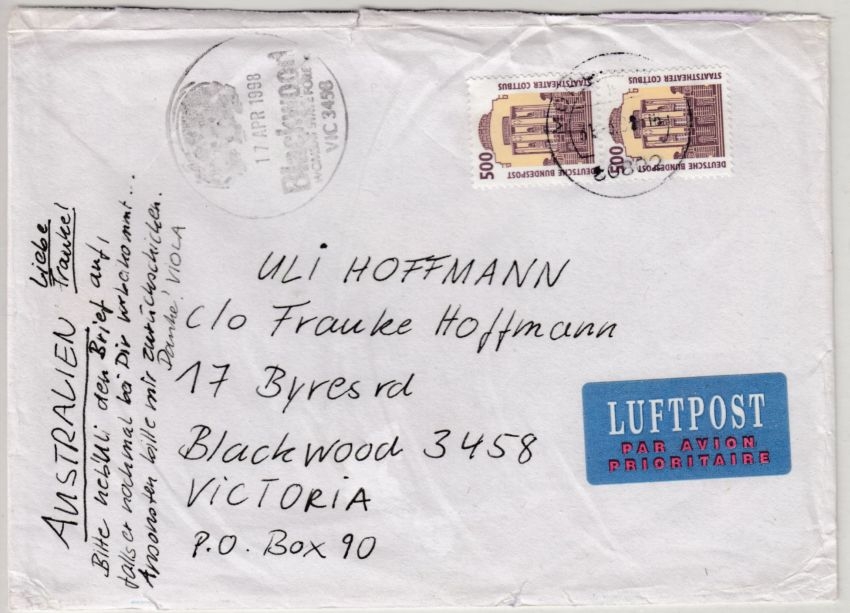 17 APR 1998
Blackwood
VIC 3458
500
DEUTSCHE BUNDESPOST
STAATSTHEATER COTTBUS
500
DEUTSCHE BUNDESPOST
STAATSTHEATER COTTBUS
ULI HOFFMANN
c/o Frauke Hoffmann
17 Byres rd
Blackwood 3458
VICTORIA
P.O. Box 90
LUFTPOST
PAR AVION
PRIORITAIRE
AUSTRALIEN
Liebe
Frauke!
Bitte heb Uli den Brief auf,
falls er nochmal bei Dir vorbeikommt...
Ansonsten bitte mir zurückschicken.
Danke! VIOLA